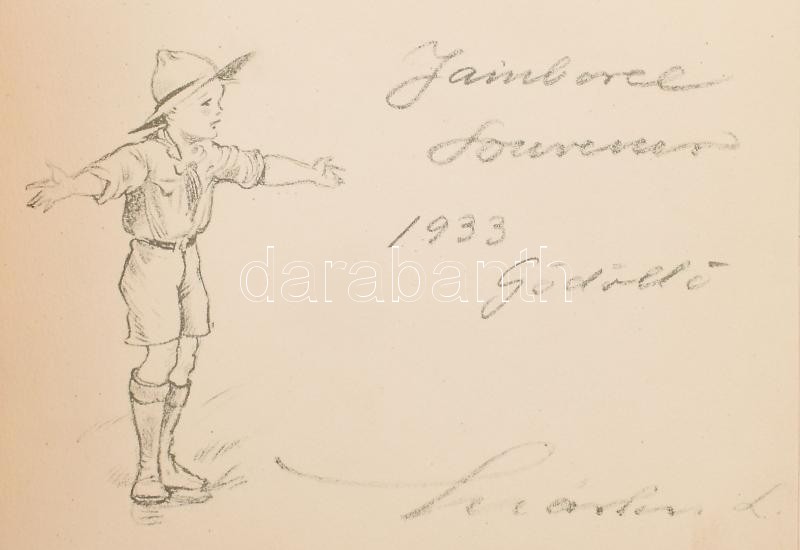 Jamboree
Souvenir
1933
Gödöllő
darabanth
Márton L.